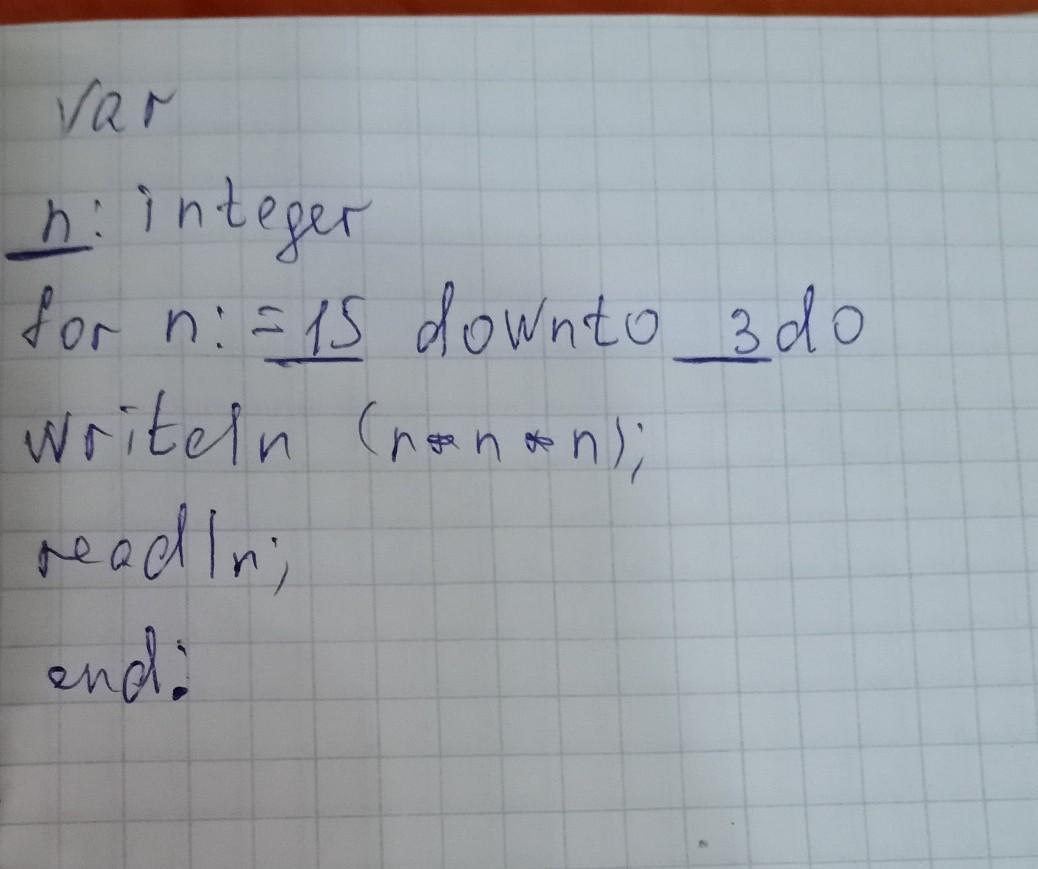 var
n: integer
for n: =15 downto 3 do
writeln (n*n*n);
readln;
end: